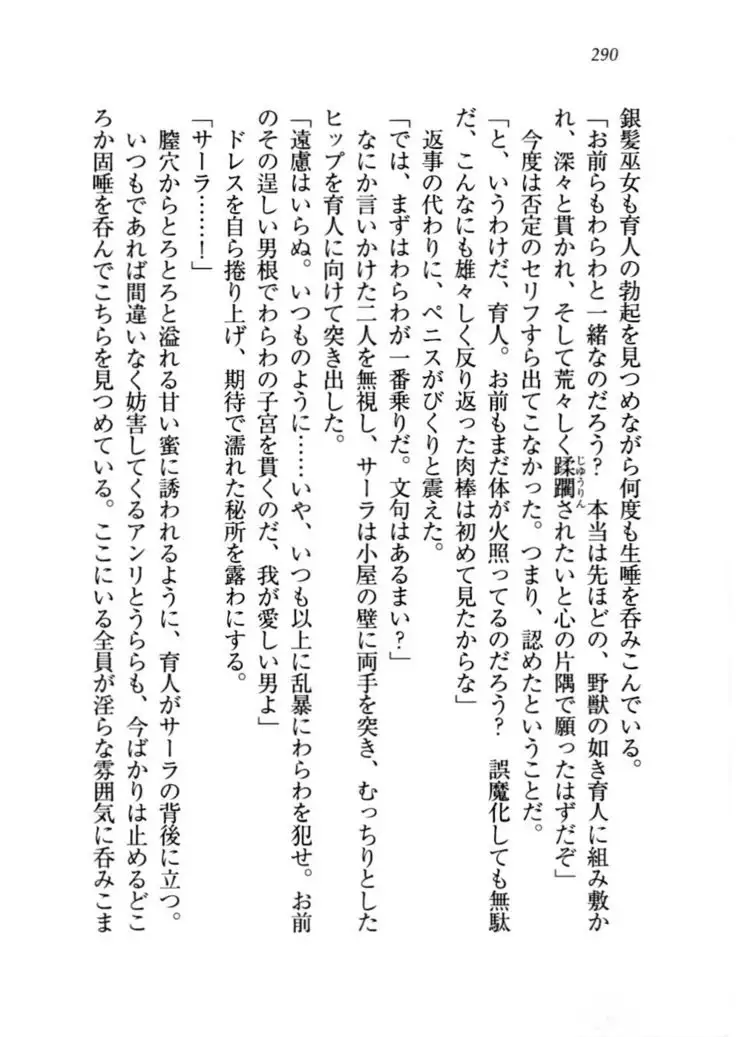 290
銀髪巫女も育人の勃起を見つめながら何度も生唾を呑みこんでいる。
「お前らもわらわと一緒なのだろう？　本当は先ほどの、野獣の如き育人に組み敷か
れ、深々と貫かれ、そして荒々しく蹂躙されたいと心の片隅で願ったはずだぞ」
じゅうりん
今度は否定のセリフすら出てこなかった。つまり、認めたということだ。
「と、いうわけだ、育人。お前もまだ体が火照ってるのだろう？　誤魔化しても無駄
だ、こんなにも雄々しく反り返った肉棒は初めて見たからな」
返事の代わりに、ペニスがびくりと震えた。
「では、まずはわらわが一番乗りだ。文句はあるまい？」
なにか言いかけた二人を無視し、サーラは小屋の壁に両手を突き、むっちりとした
ヒップを育人に向けて突き出した。
「遠慮はいらぬ。いつものように……いや、いつも以上に乱暴にわらわを犯せ。お前
のその逞しい男根でわらわの子宮を貫くのだ、我が愛しい男よ」
ドレスを自ら捲り上げ、期待で濡れた秘所を露わにする。
「サーラ……！」
膣穴からとろとろと溢れる甘い蜜に誘われるように、育人がサーラの背後に立つ。
いつもであれば間違いなく妨害してくるアンリとうららも、今ばかりは止めるどこ
ろか固唾を呑んでこちらを見つめている。ここにいる全員が淫らな雰囲気に呑みこま